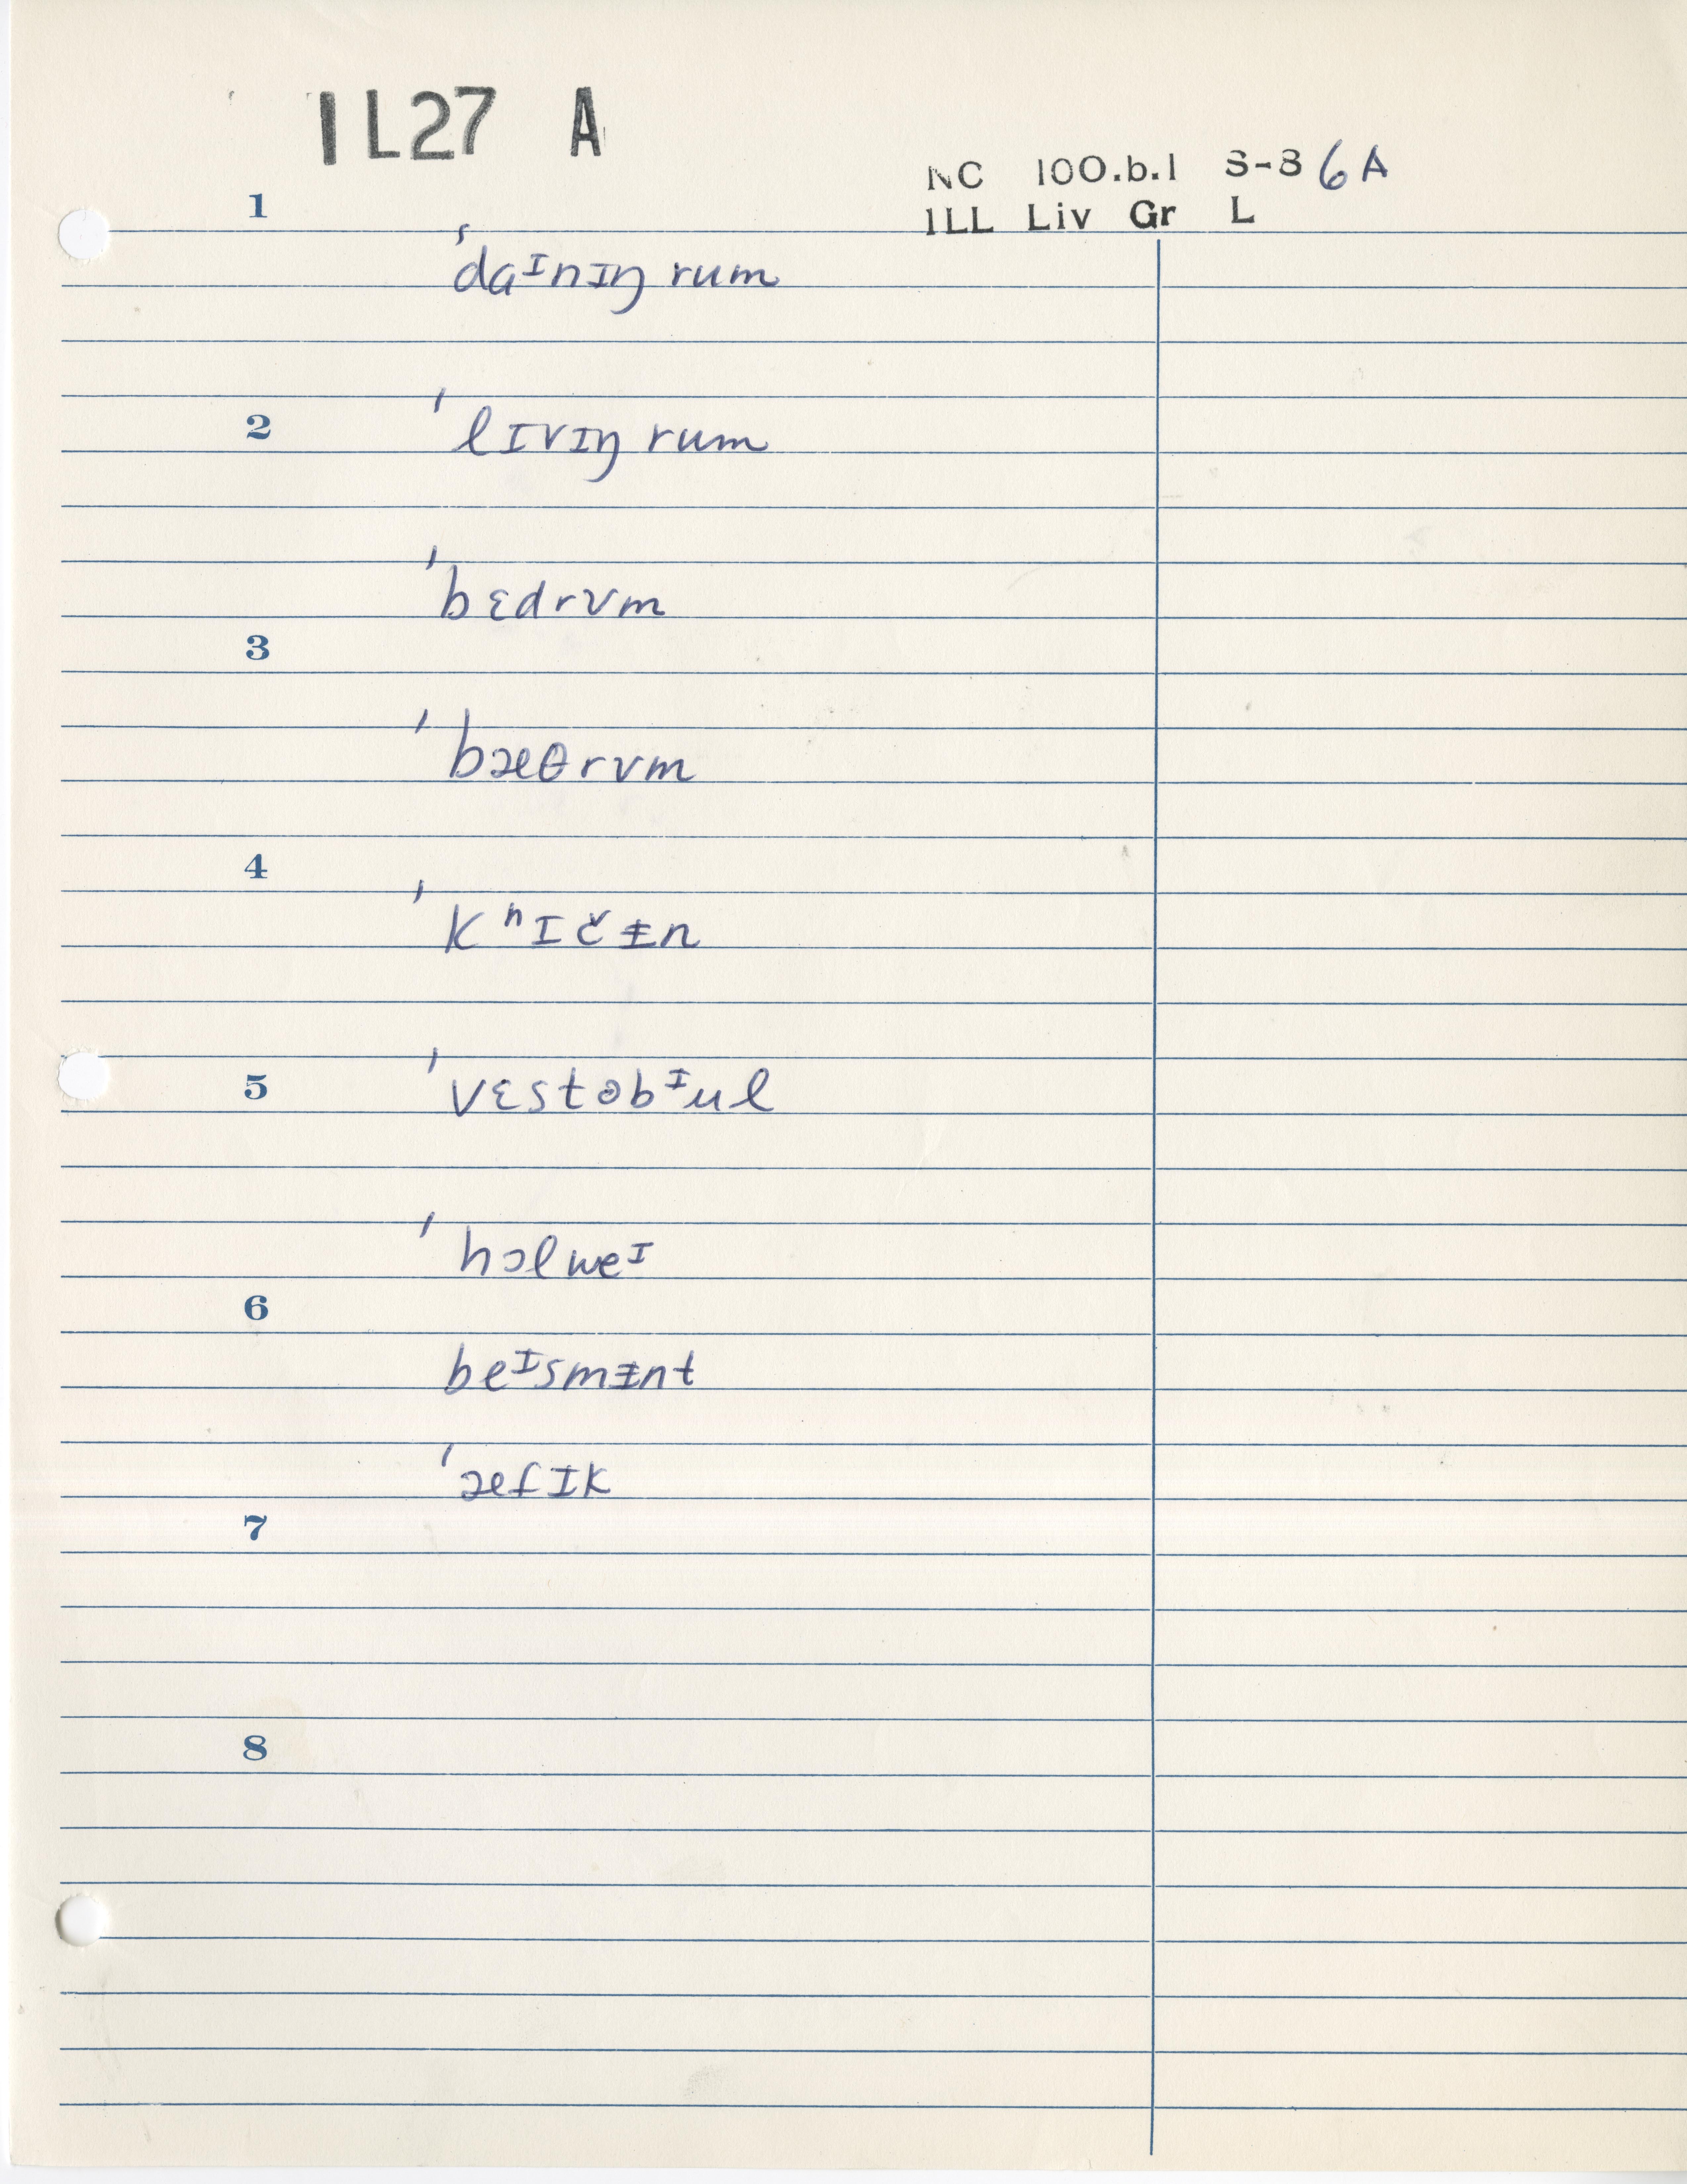 1L27 A
NC 100.b.1 S-8 6A
ILL Liv Gr L
1
ˈdaᴵnɪŋ rum
2
ˈlɪvɪŋ rum
ˈbɛdrʋm
3
ˈbæθrʋm
4
ˈkʰɪčᵻn
5
ˈvɛstəbᴵul
ˈhɔlweᴵ
6
beᴵsmᵻnt
ˈæfɪk
7
8